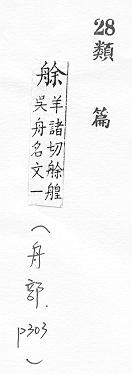 28
類篇
艅
羊諸切艅艎
吳舟名文一
(舟部.
p303)